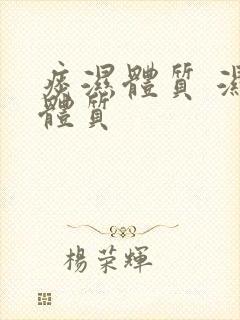 痰濕體質 濕
體質
楊荣輝